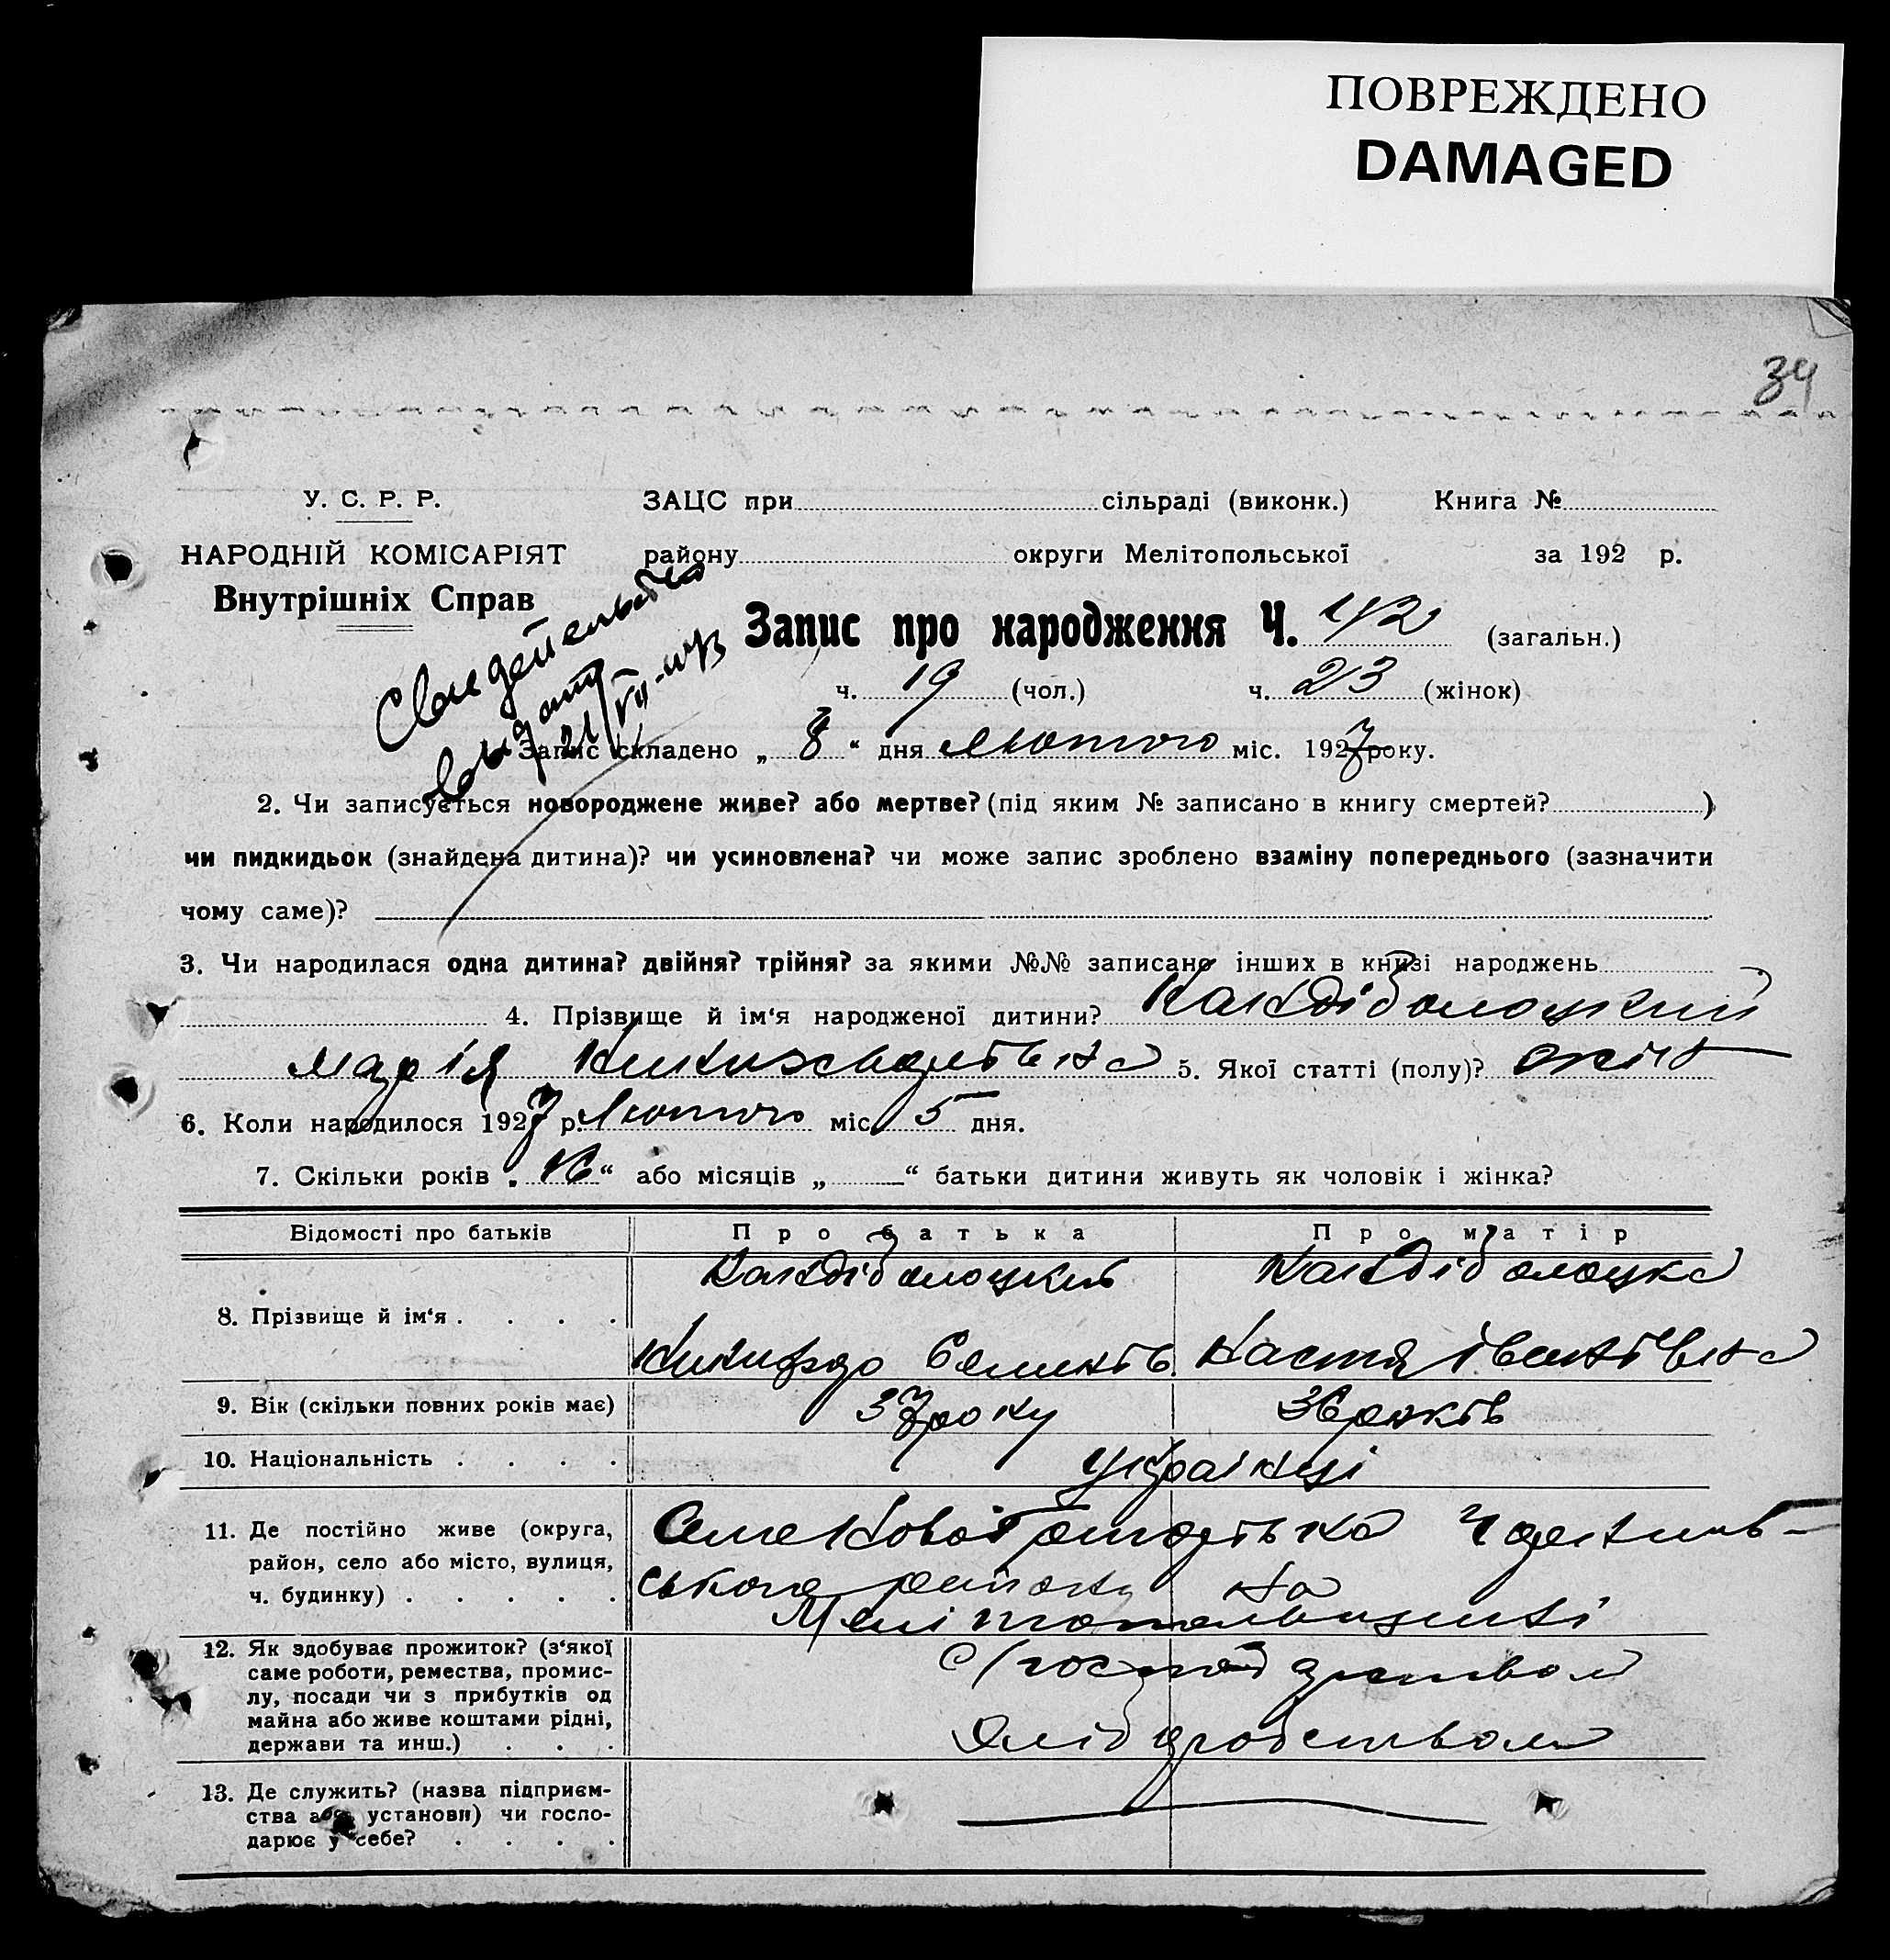 ПОВРЕЖДЕНО
DAMAGED
39
У. С. Р. Р. ЗАЦС при сільраді (виконк.) Книга №
НАРОДНІЙ КОМІСАРІЯТ району округи Мелітопольської за 192 р.
Внутрішніх Справ
Свидетельство
выдано
21/VII-47
Запис про народження Ч. 42 (загальн.)
ч. 19 (чол.) ч. 23 (жінок)
Запис складено „ 8 “ дня Лютого міс. 1927 року.
2. Чи записується новороджене живе? або мертве? (під яким № записано в книгу смертей? )
чи пидкидьок (знайдена дитина)? чи усиновлена? чи може запис зроблено взаміну попереднього (зазначити
чому саме)?
3. Чи народилася одна дитина? двійня? трійня? за якими №№ записано інших в книзі народжень
4. Прізвище й ім‘я народженої дитини? Кандіболоцкий
Марія 5. Якої статті (полу)? жін
6. Коли народилося 1927 р. Лютого міс. 5 дня.
7. Скільки років „ 16 “ або місяців „ “ батьки дитини живуть як чоловік і жінка?
Відомості про батьків Про батька Про матір
Кандіболоцкий Кандіболоцка
8. Прізвище й ім‘я . . . .
Никифор Семенів Настя Іванівна
9. Вік (скільки повних років має) 37 року 36 років
10. Національність . . . . Українці
11. Де постійно живе (округа,
район, село або місто, вулиця,
ч. будинку) . . . . .
Село Новобогданівка Чернинів-
ського району на
Мелітопольщині
12. Як здобуває прожиток? (з‘якої
саме роботи, ремества, промис-
лу, посади чи з прибутків од
майна або живе коштами рідні,
держави та инш.) . . .
С/господарством
хліборобством
13. Де служить? (назва підприєм-
ства або установи) чи госпо-
дарює у себе? . . . .